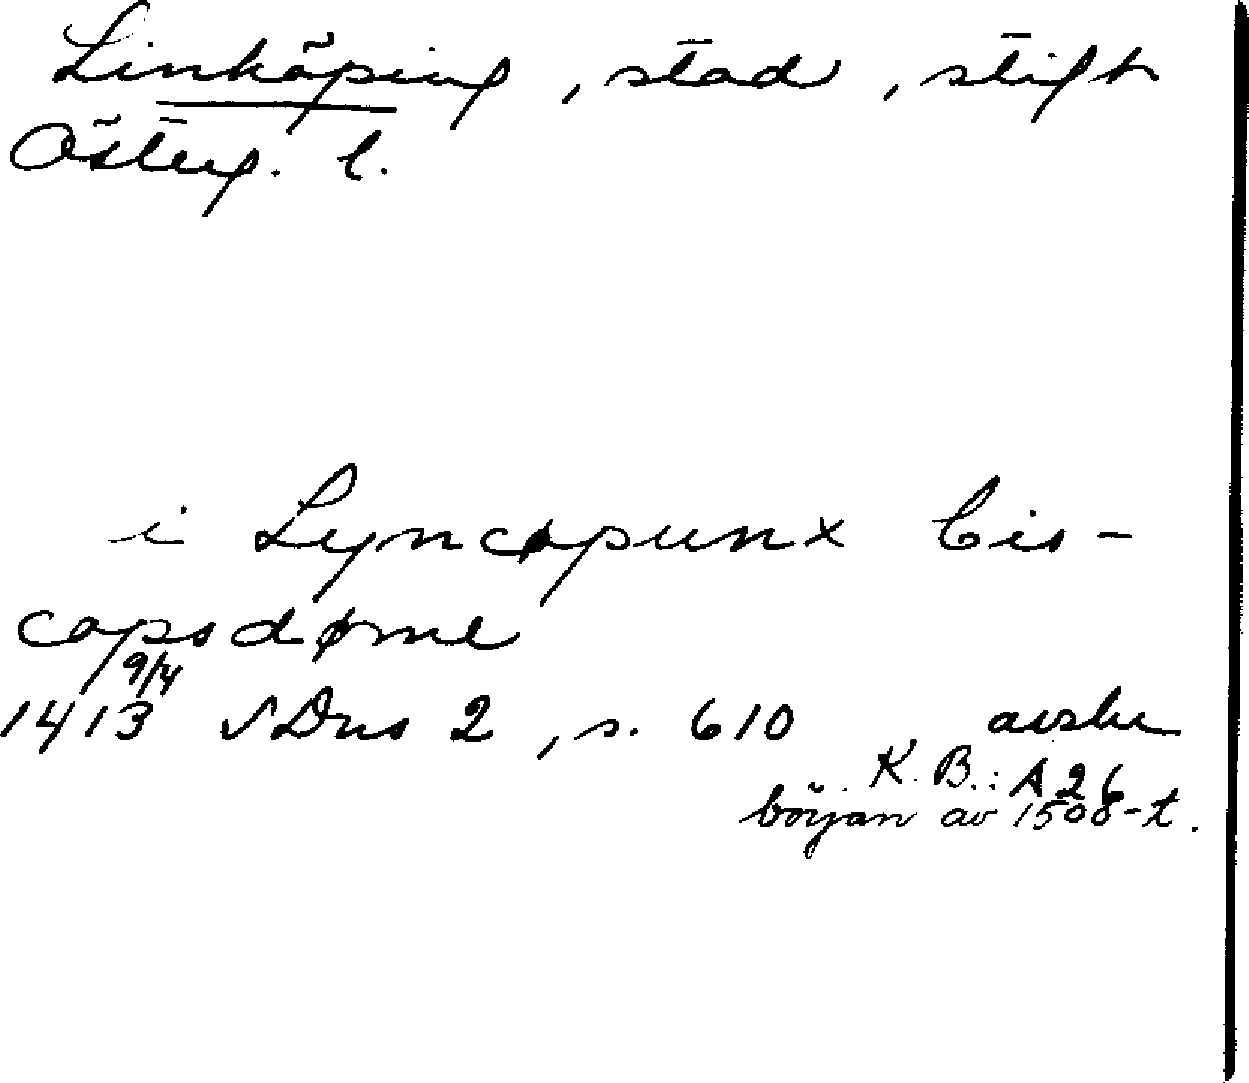 Linköping, stad, stift
Österg. l.
i Lyncøpunx bis-
copsdøme
9/4
1413 SDns 2, s. 610 avskr
K. B.: A 26
början av 1500-t.